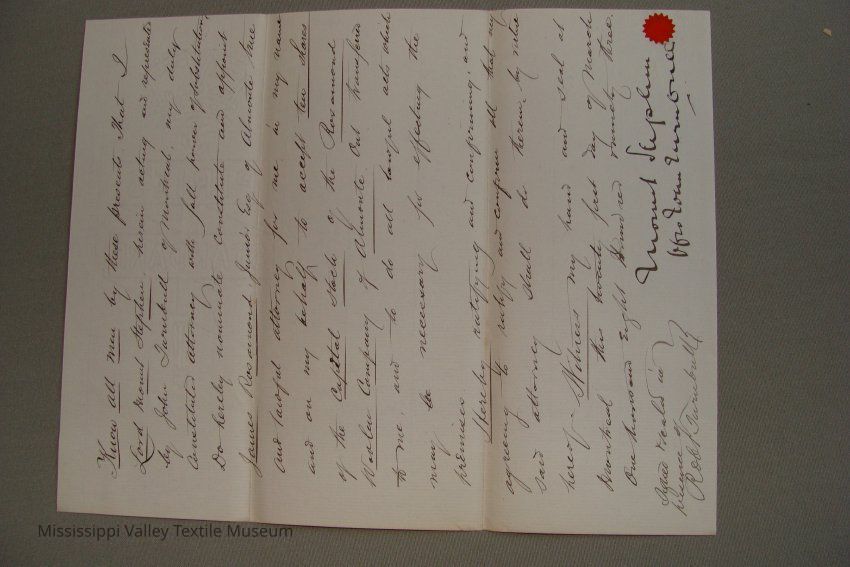 Know all men by these presents That I
Lord Mount Stephen herein acting and represented
by John Turnbull of Montreal, my duly
Constituted attorney with full power of substitution
Do hereby nominate constitute and appoint
James Rosamond Junior Esq of Almonte true
and lawful attorney for me in my name
and on my behalf to accept ten shares
of the Capital Stock of the Rosamond
Woolen Company of Almonte Ont transferred
to me, and to do all lawful acts which
may be necessary for effecting the
premises
Hereby ratifying and confirming, and
agreeing to ratify and confirm all that my
said attorney shall do therein by virtue
hereof. Witness my hand and seal at
Montreal this twenty first day of March
One thousand eight hundred ninety three.
Mount Stephen
John Turnbull
Signed & sealed in
presence of
Robt Turnbull
Mississippi Valley Textile Museum